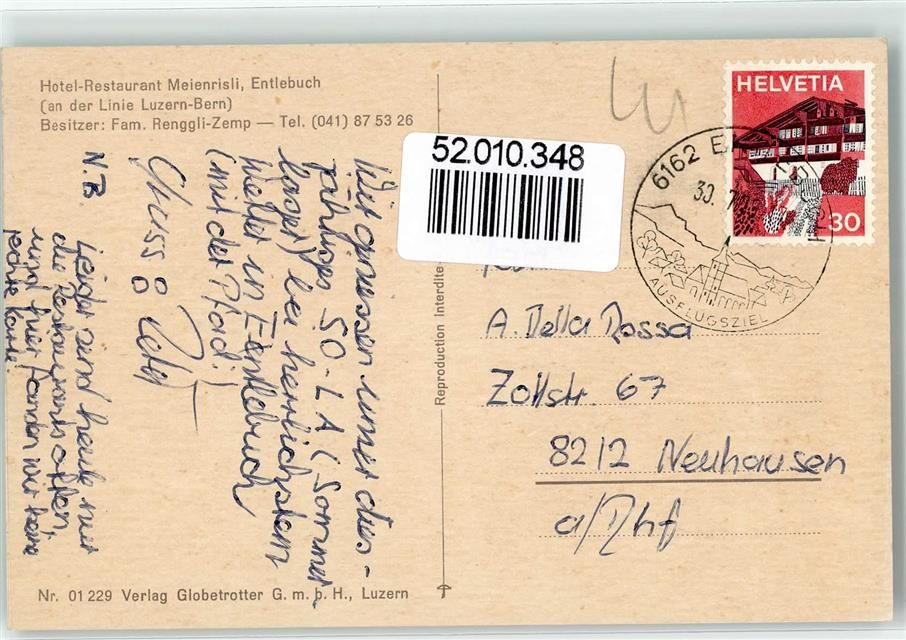 Hotel-Restaurant Meienrisli, Entlebuch
(an der Linie Luzern-Bern)
Besitzer: Fam. Renggli-Zemp — Tel. (041) 87 53 26
Wir geniessen unser dies-
jähriges SO-LA (Sommer-
lager) bei herrlichstem
Wetter in Entlebuch
(mit der Pfadi)
Gruss
N.B
Leider sind heute nur
die Restaurants offen,
und hier fanden wir keine
rechte Karte!
Nr. 01 229 Verlag Globetrotter G. m. b. H., Luzern
Reproduction interdite
52.010.348
HELVETIA
30
6162
30.
AUSFLUGSZIEL
A. Della Rossa
Zollstr. 67
8212 Neuhausen
a/Rhf